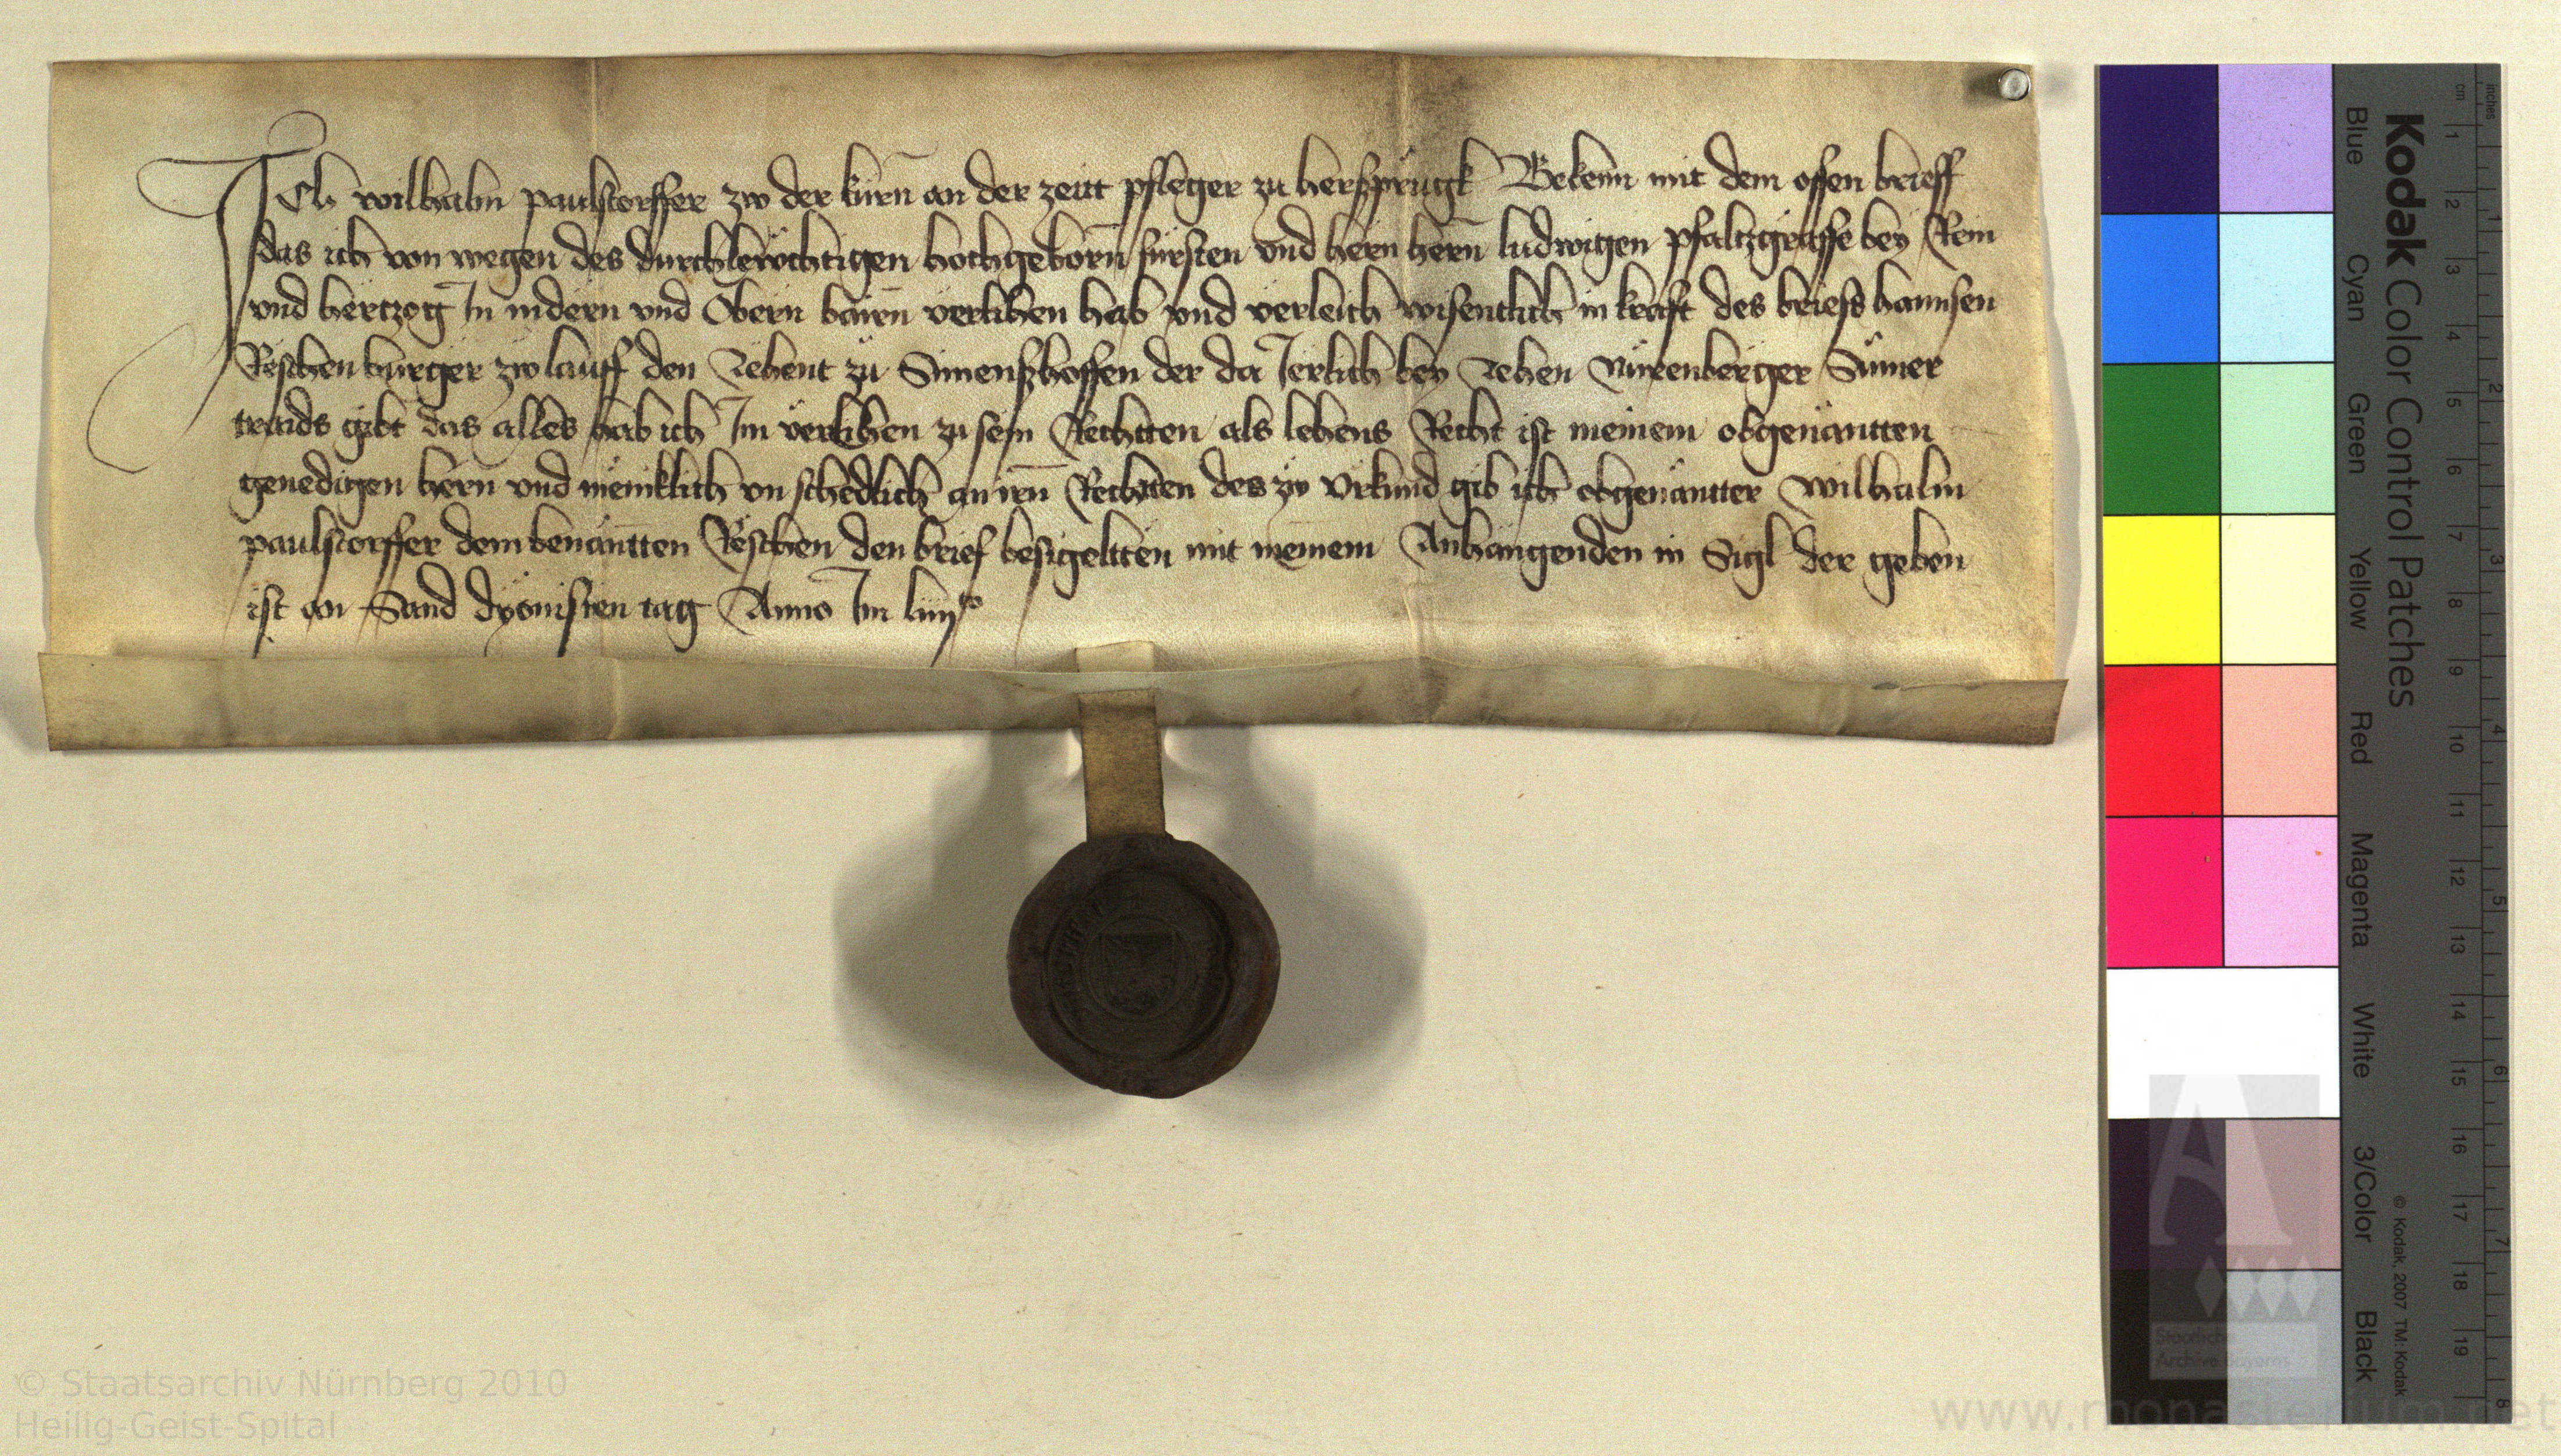 Ich wilhalm paulstorffer zw der kürn an der zeitt pfleger zu hersprugk Bekenn mit dem offen brieff
das ich von wegen des durchlewchtigen hochgeborn fürsten vnd hern hern ludwigen pfaltzgraffe bey Rein
vnd hertzog In nidern vnd Obern bairn verlihen hab vnd verleich wisentlich in kraft des briefs hannsen
Reschen burger zw lauff den zehent zu Simenshoffen der da Jerlich bey zehen Nürenberger Sümer
traids gibt das alles hab ich Im verlihen zu sein Rechtten als lehens Recht ist meinem obgenantten
genedigen hern vnd meniklich vn schedlich an irn Rechtten des zw vrkund gib ich obgenantter wilhalm
paulstorffer dem benantten Reschen den brief besigeltten mit meinem Anhangenden in Sigl der geben
ist an Sand dyonisien tag Anno Im liiijto
Kodak Color Control Patches
Blue Cyan Green Yellow Red Magenta White 3/Color Black
© Kodak, 2007 TM: Kodak
cm 1 2 3 4 5 6 7 8 9 10 11 12 13 14 15 16 17 18 19
inches 1 2 3 4 5 6 7 8
Staatliche
Archive Bayerns
© Staatsarchiv Nürnberg 2010
Heilig-Geist-Spital
www.monasterium.net